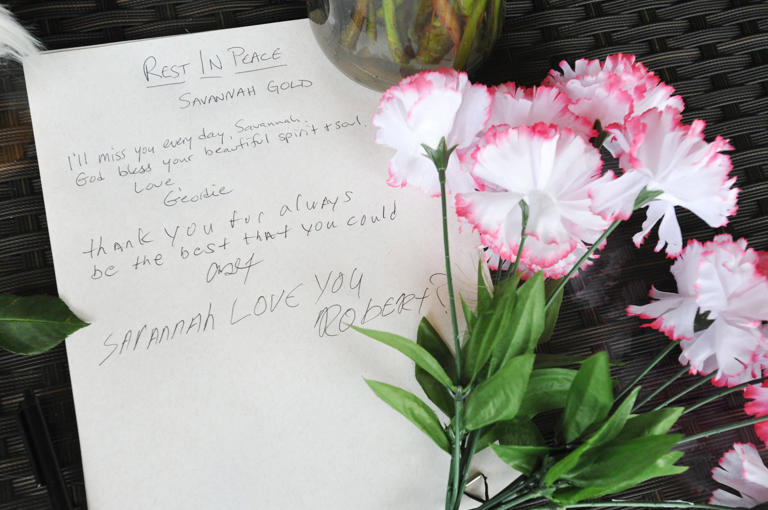 REST IN PEACE
SAVANNAH GOLD
I'll miss you every day, Savannah.
God bless your beautiful spirit + soul.
Love,
Geordie
thank you for always
be the best that you could
SAVANNAH LOVE YOU
ROBERT